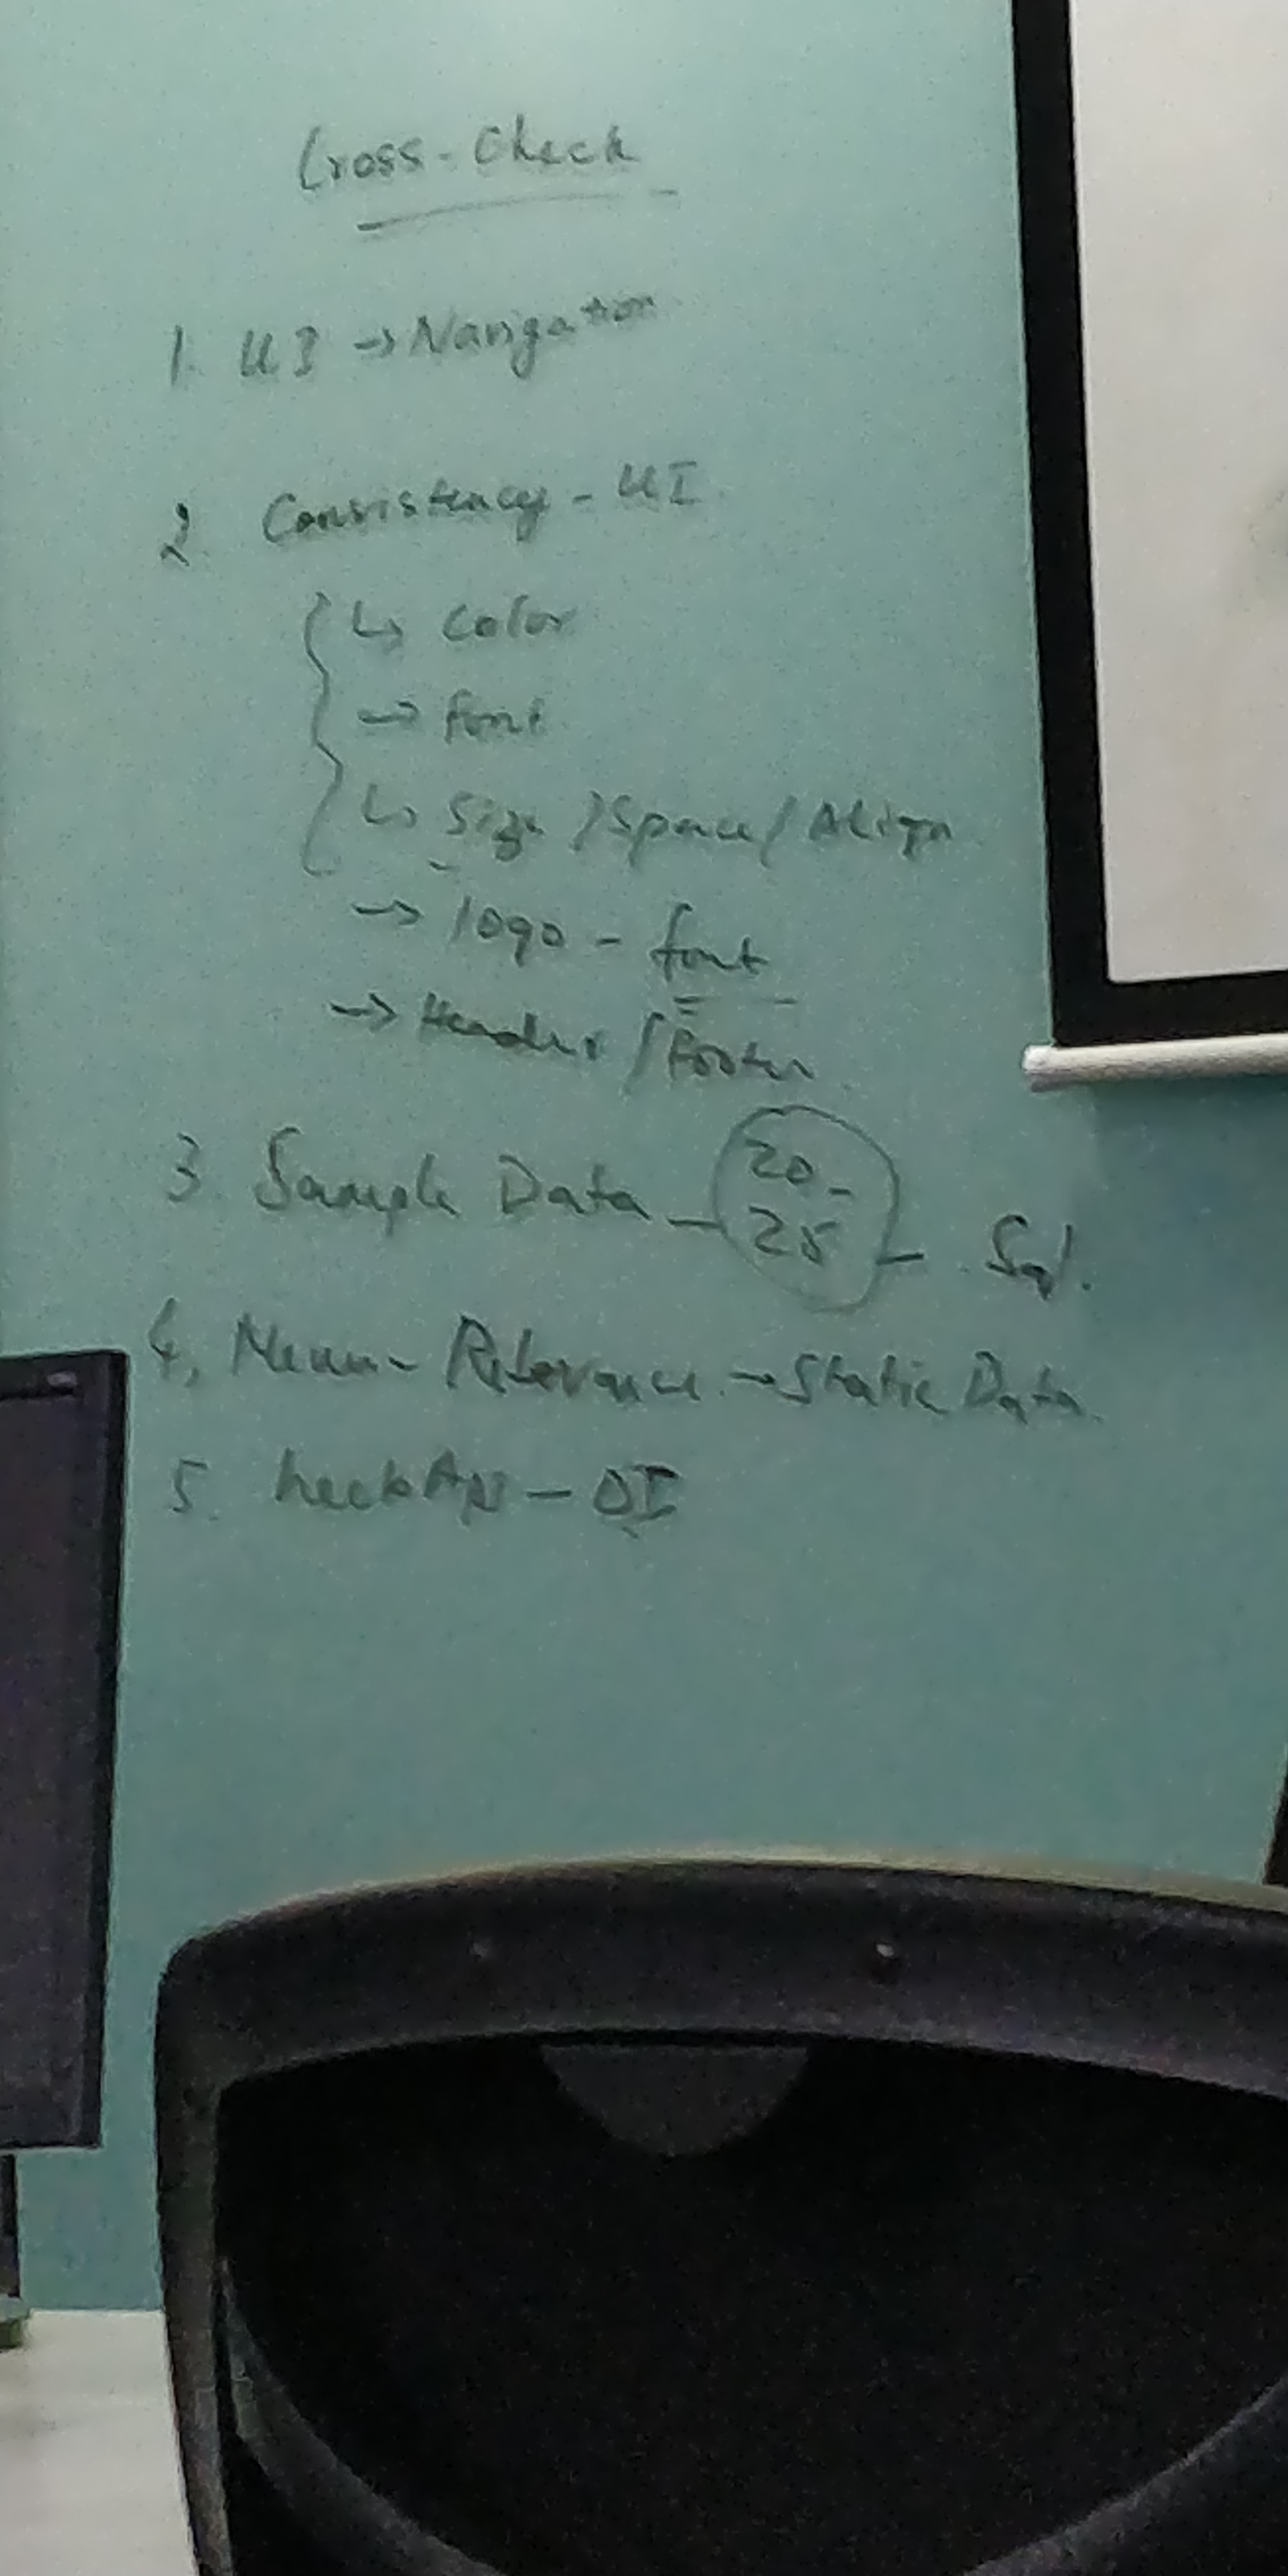 Cross-Check
1. UI → Navigation
2. Consistency - UI
↳ Color
→ font
↳ Size / Space / Align
→ logo - font
→ Header / Footer
3. Sample Data - 20-25 - Sql.
4. Relevance → Static Data.
5.